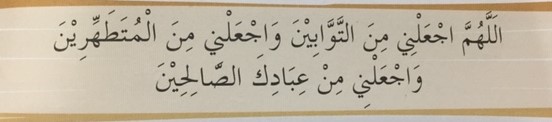 اَللَّهُمَّ اجْعَلْنِي مِنَ التَّوَّابِيْنَ وَاجْعَلْنِي مِنَ الْمُتَطَهِّرِيْنَ
وَاجْعَلْنِي مِنْ عِبَادِكَ الصَّالِحِيْنَ